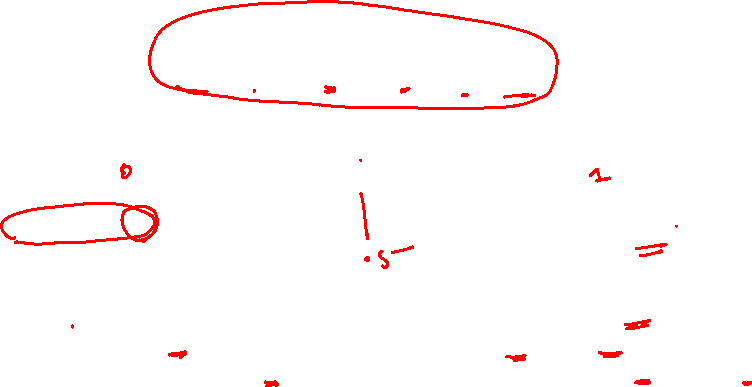 0 1
.5